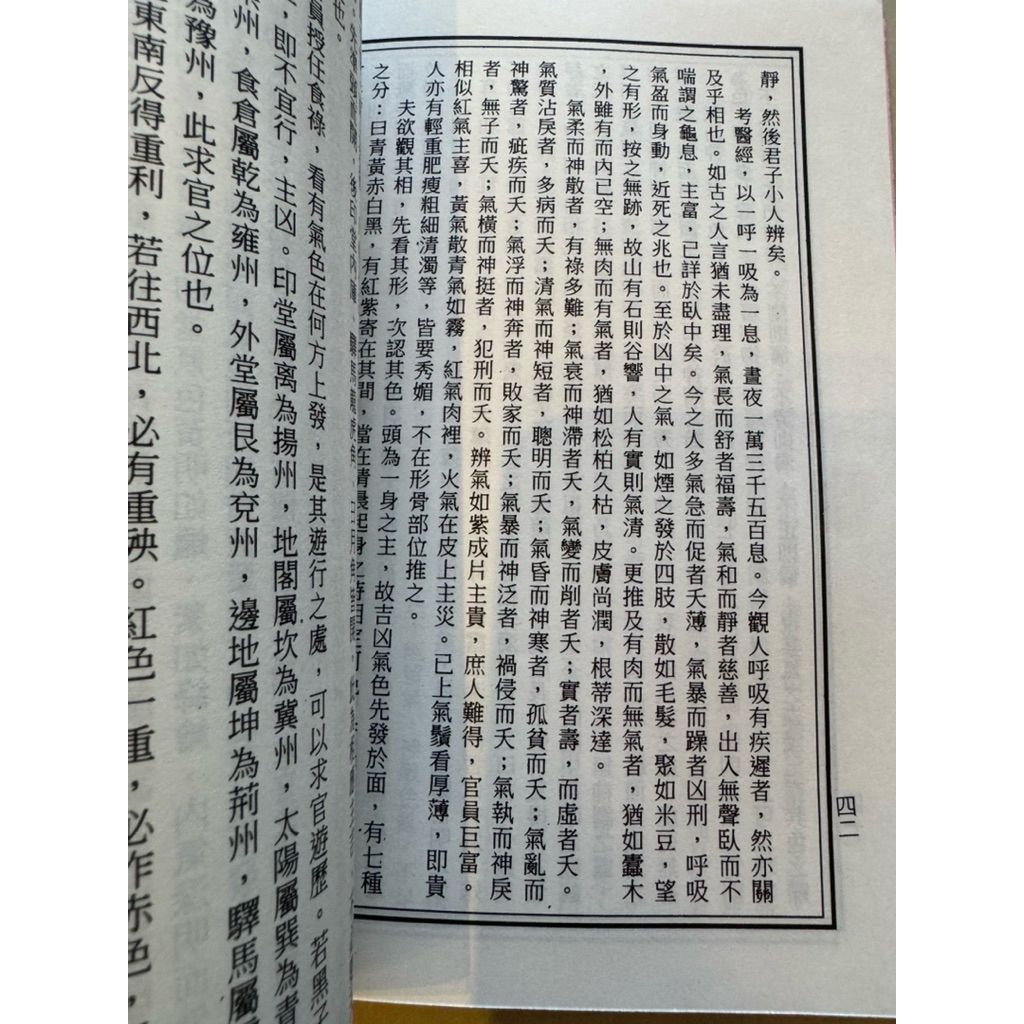 靜，然後君子小人辨矣。
考醫經，以一呼一吸為一息，晝夜一萬三千五百息。今觀人呼吸有疾遲者，然亦關
及乎相也。如古之人言猶未盡理，氣長而舒者福壽，氣和而靜者慈善，出入無聲臥而不
喘謂之龜息，主富，已詳於臥中矣。今之人多氣急而促者夭薄，氣暴而躁者凶刑，呼吸
氣盈而身動，近死之兆也。至於凶中之氣，如煙之發於四肢，散如毛髮，聚如米豆，望
之有形，按之無跡，故山有石則谷響，人有實則氣清。更推及有肉而無氣者，猶如蠹木
，外雖有而內已空；無肉而有氣者，猶如松柏久枯，皮膚尚潤，根蒂深達。
氣柔而神散者，有祿多難；氣衰而神滯者夭，氣變而削者夭；實者壽，而虛者夭。
氣質沾戾者，多病而夭；清氣而神短者，聰明而夭；氣昏而神寒者，孤貧而夭；氣亂而
神驚者，疵疾而夭；氣浮而神奔者，敗家而夭；氣暴而神泛者，禍侵而夭；氣執而神戾
者，無子而夭；氣橫而神挺者，犯刑而夭。辨氣如紫成片主貴，庶人難得，官員巨富。
相似紅氣主喜，黃氣散青氣如霧，紅氣肉裡，火氣在皮上主災。已上氣鬚看厚薄，即貴
人亦有輕重肥瘦粗細清濁等，皆要秀媚，不在形骨部位推之。
夫欲觀其相，先看其形，次認其色。頭為一身之主，故吉凶氣色先發於面，有七種
之分：曰青黃赤白黑，有紅紫寄在其間，當在清晨起身之時
四二
也。
員授任食祿，看有氣色在何方上發，是其遊行之處，可以求官遊歷。若黑
，即不宜行，主凶。印堂屬离為揚州，地閣屬坎為冀州，太陽屬巽為青
州，食倉屬乾為雍州，外堂屬艮為兗州，邊地屬坤為荊州，驛馬屬
為豫州，此求官之位也。
東南反得重利，若往西北，必有重殃。紅色一重，必作赤色，